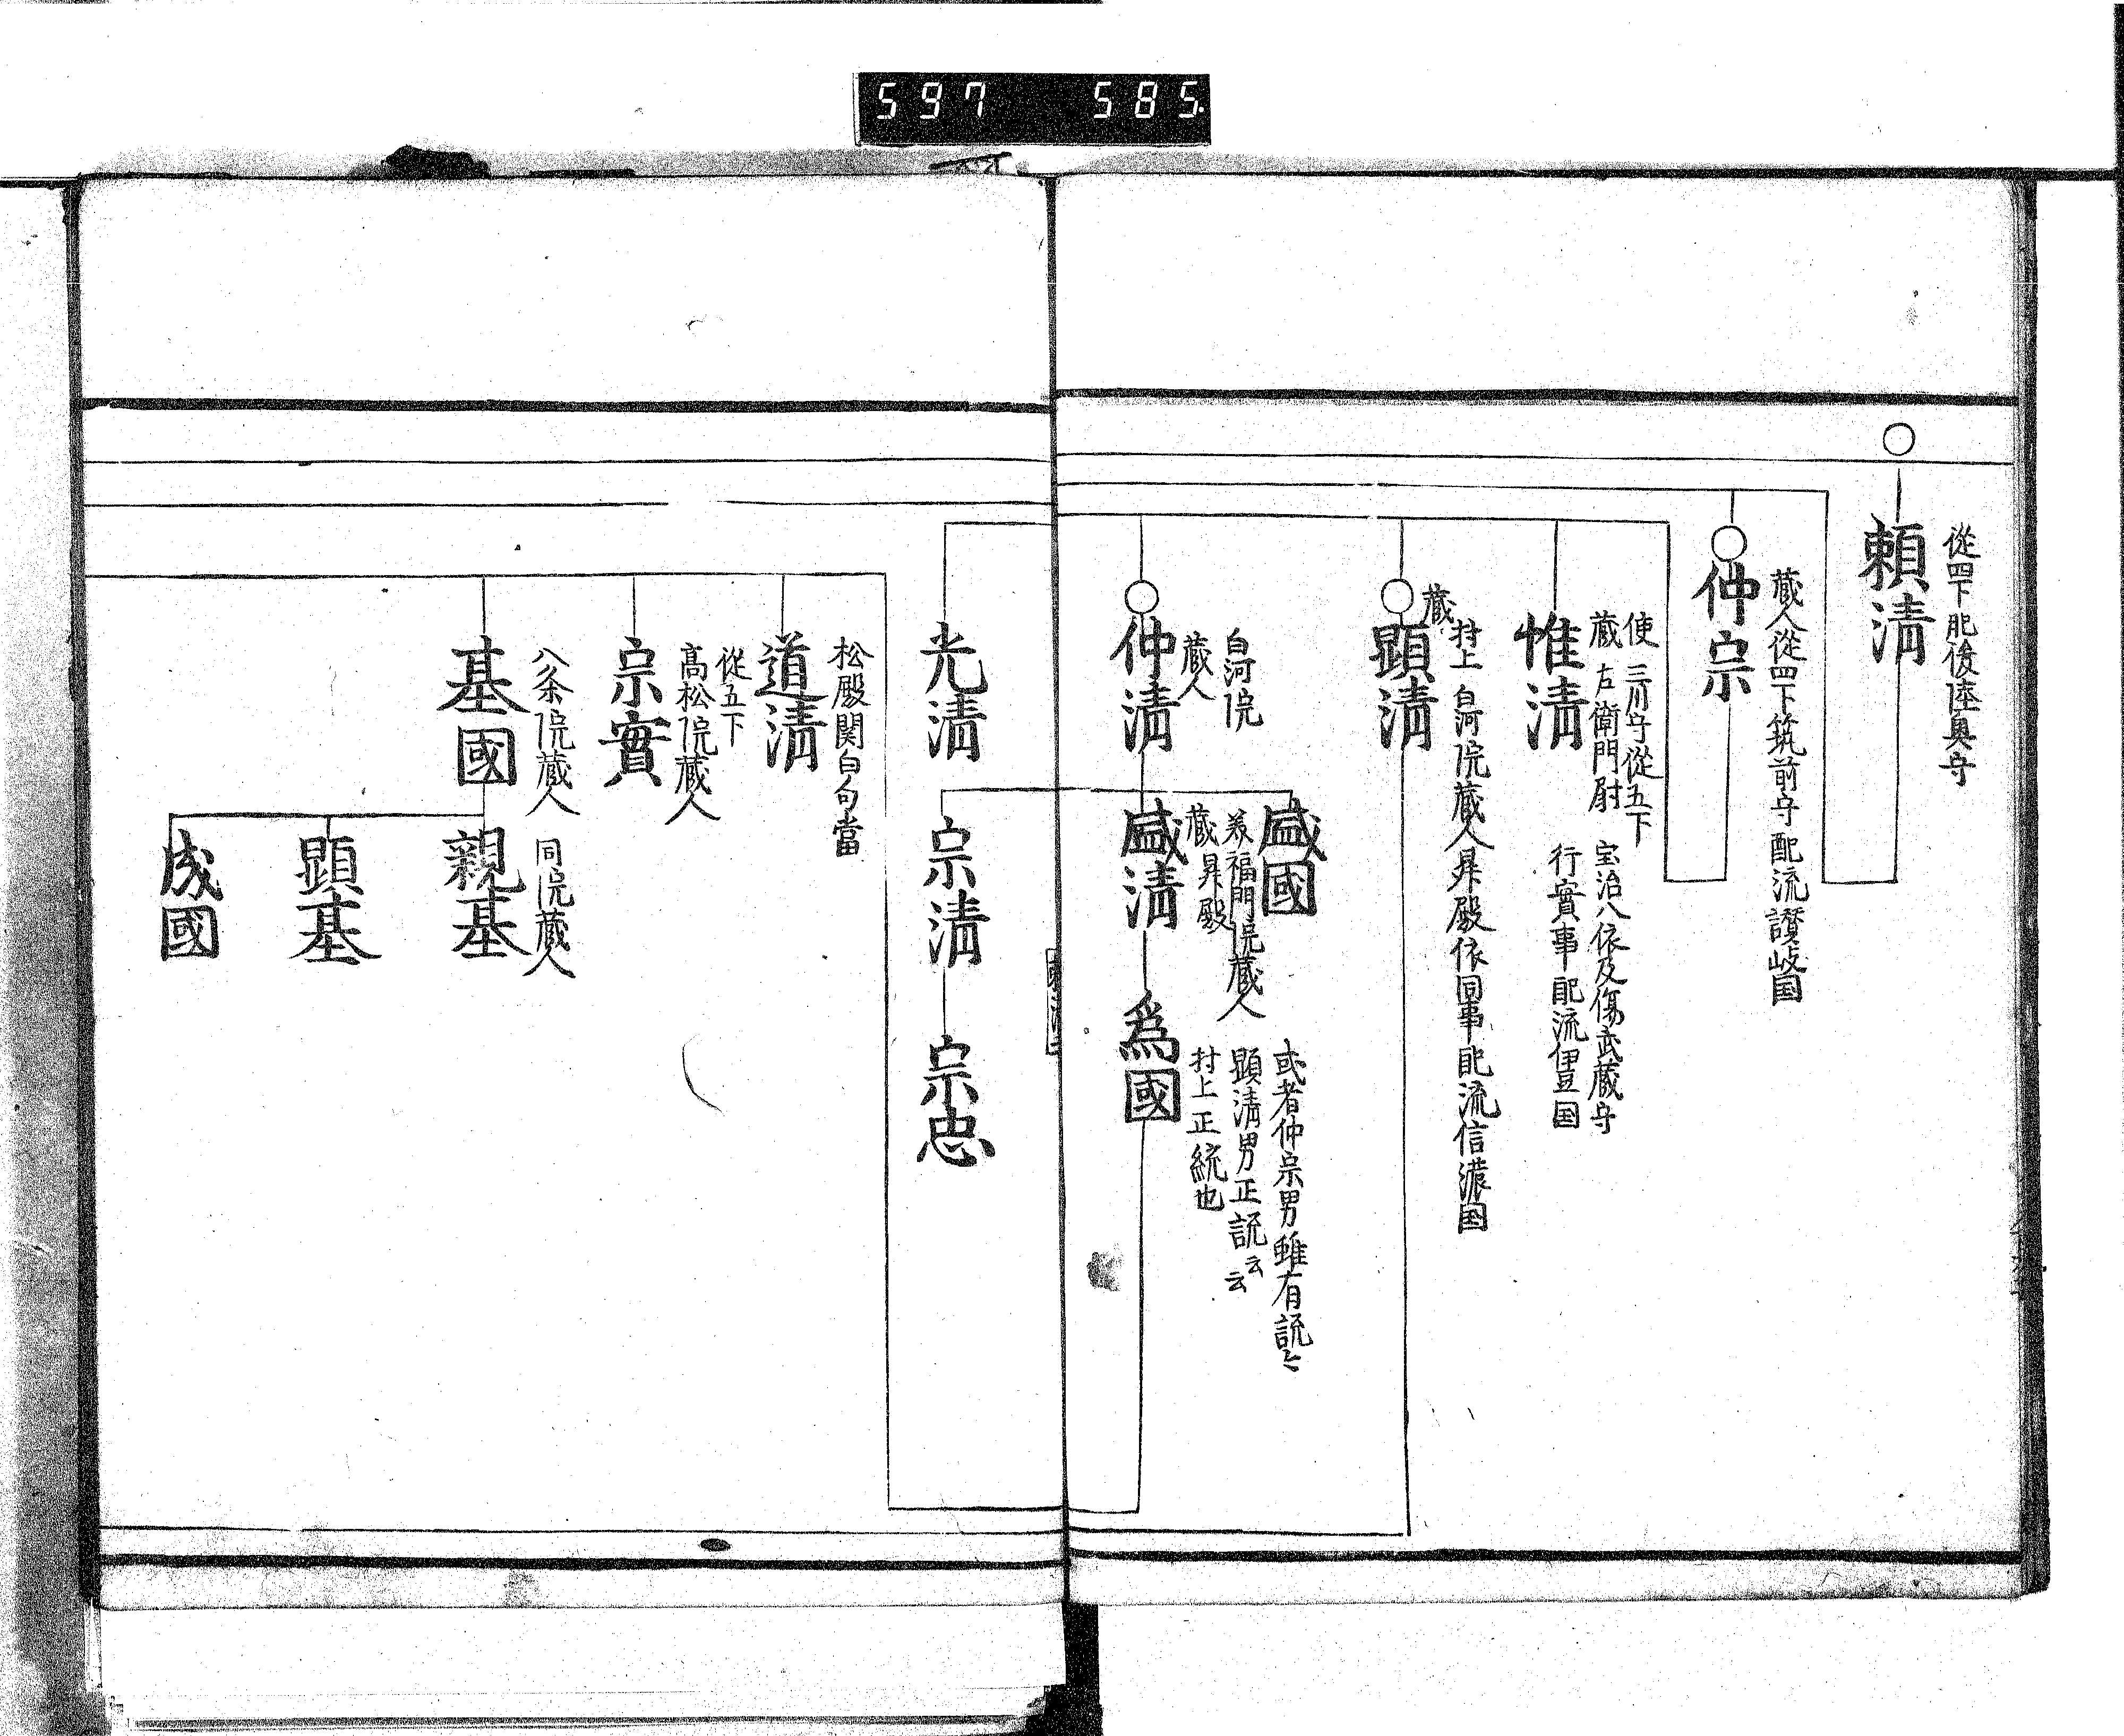 597 585.
從四下肥後陸奥守
頼清
蔵人從四下筑前守配流讃岐国
仲宗
使 三川守從五下
蔵 左衛門尉
宝治八依及傷武蔵守
行實事配流伊豆国
惟清
蔵
村上 白河院蔵人昇殿依同事配流信濃国
顕清
白河院
蔵人
仲清
盛國
美福門院蔵人
蔵 昇殿
盛清
或者仲宗男雖有説
顕清男正説云云
村上正統也
為國
光清
宗清
宗忠
松殿関白勾當
道清
從五下
高松院蔵人
宗實
八条院蔵人
基國
同院蔵人
親基
顕基
成國